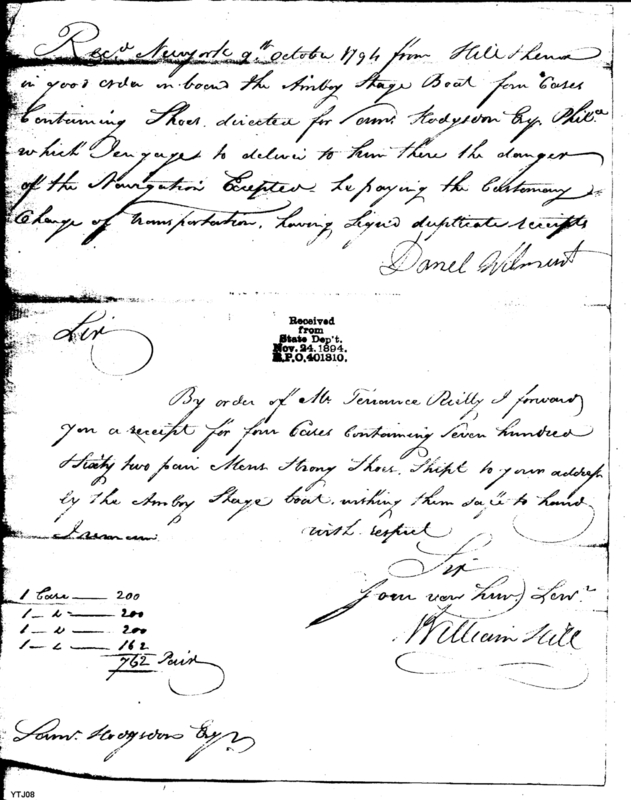 Rec.d Newyork 9.th October 1794 from Hill &
in good order on board the Amboy Stage Boat four Cases
Containing Shoes, directed for Saml. Hodgsdon Esq. Phil.a
which I engage to deliver to him there the danger
of the Navigation Excepted he paying the Customary
Charge of transportation, having Sign'd duplicate receipts
Daniel
Sir
Received
from
State Dep't.
Nov. 24. 1894.
R.P.O. 401810.
By order of Mr. Terrance Reilly I forward
you a receipt for four Cases Containing Seven hundred
& Sixty two pair Mens Strong Shoes, Shipt to your address
by the Amboy Stage boat, wishing them safe to hand
I remain with respect
Sir
your very hum.
William Hill
1 Case — 200
1 — " — 200
1 — " — 200
1 — " — 162
762 Pair
Saml. Hodgsdon Esqr.
YTJ08